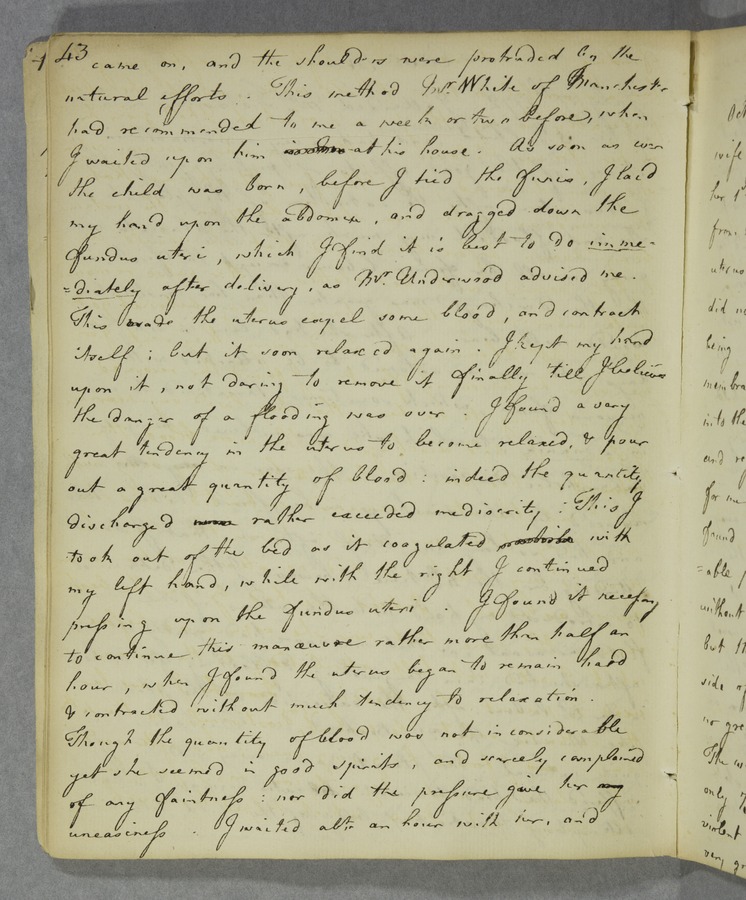 43
came on, and the shoulders were protruded by the
natural efforts. This method Mr. White of Manchester
had recommended to me a week or two before, when
I waited upon him at his house. As soon as ever
the child was born, before I tied the funis, I laid
my hand upon the abdomen, and dragged down the
fundus uteri, which I find it is best to do imme-
=diately after delivery, as Mr. Underwood advised me.
This made the uterus expel some blood, and contract
itself; but it soon relaxed again. I kept my hand
upon it, not daring to remove it finally till I believed
the danger of a flooding was over. I found a very
great tendency in the uterus to become relaxed, & pour
out a great quantity of blood: indeed the quantity
discharged rather exceeded mediocrity: This I
took out of the bed as it coagulated with
my left hand, while with the right I continued
pressing upon the fundus uteri. I found it necessary
to continue this manœuvre rather more than half an
hour, when I found the uterus began to remain hard
& contracted without much tendency to relaxation.
Though the quantity of blood was not inconsiderable
yet she seemed in good spirits, and scarcely complained
of any faintness: nor did the pressure give her any
uneasiness. I waited abt. an hour with her, and
wife
her 1
from
uterus
did
being
membra
into the
and re
for me
found
=able
without
but
side of
no gre
The
only
violent
very gr